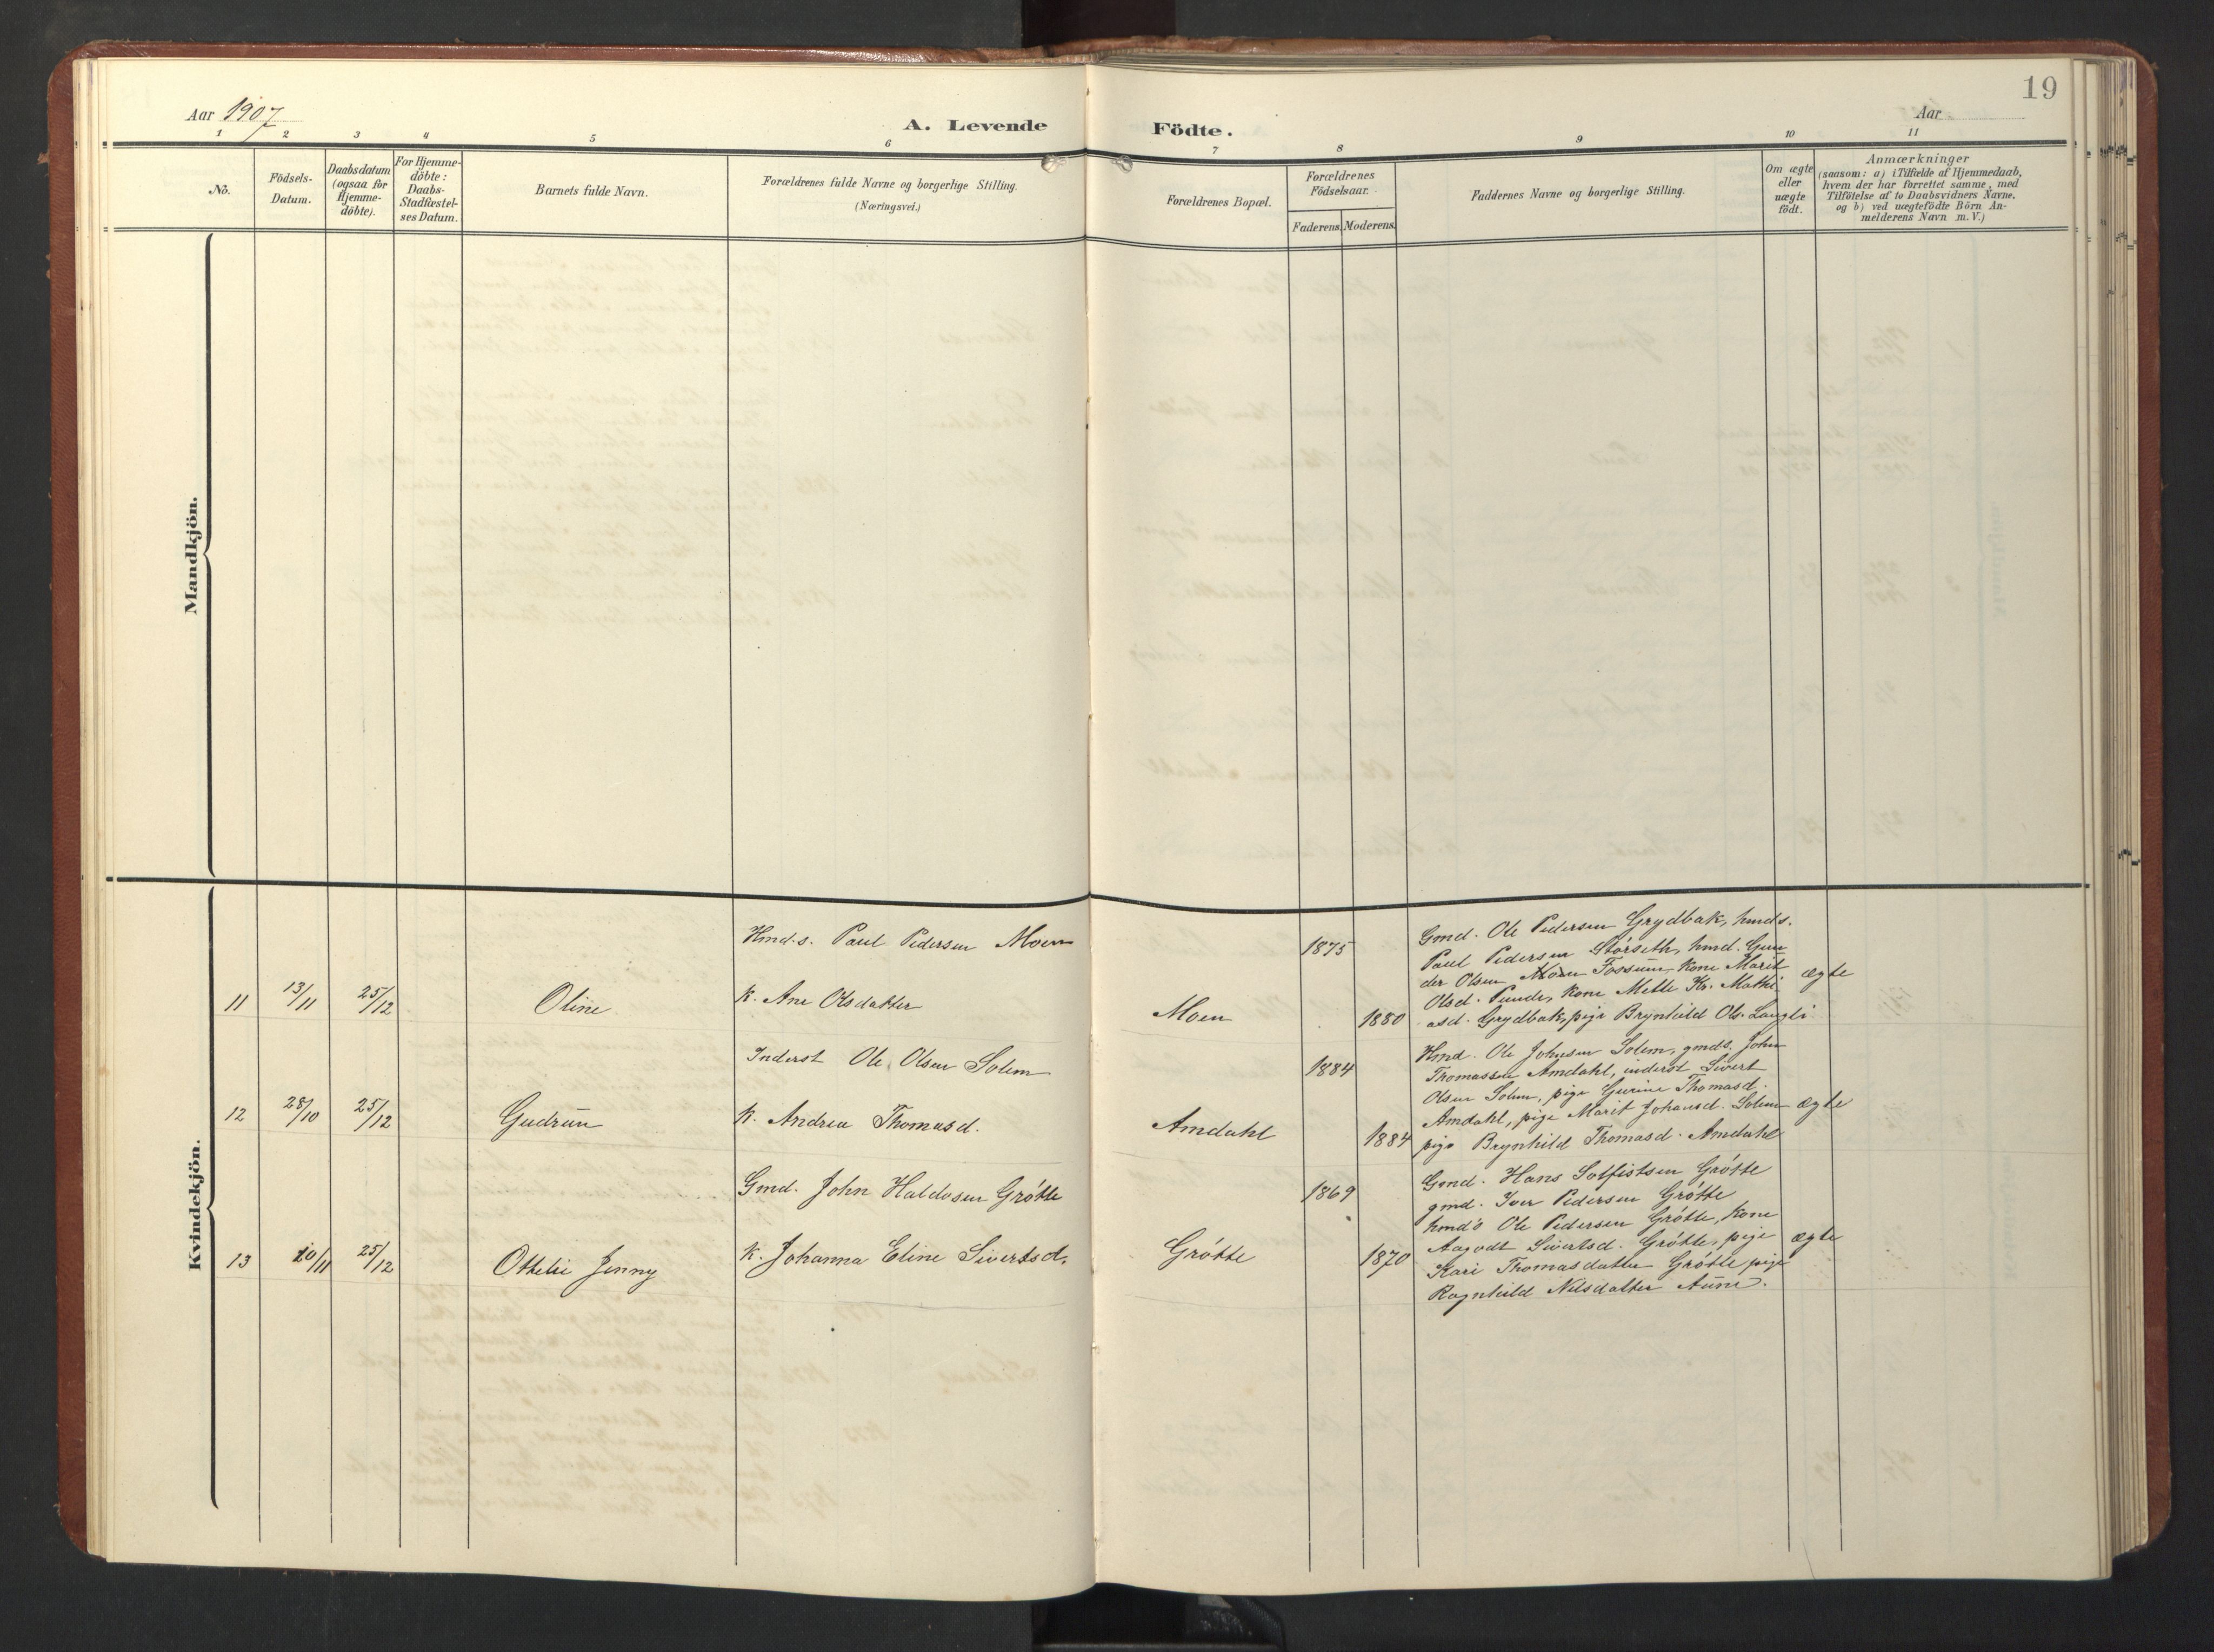 19
Aar 1907
A. Levende Födte.
Aar
1 2 3 4 5 6 7 8 9 10 11
No.
Födsels-
Datum.
Daabsdatum
(ogsaa for
Hjemme-
döbte).
For Hjemme-
döbte:
Daabs-
Stadfæstel-
ses Datum.
Barnets fulde Navn.
Forældrenes fulde Navne og borgerlige Stilling.
(Næringsvei.)
Forældrenes Bopæl.
Forældrenes
Födselsaar.
Faderens. Moderens.
Faddernes Navne og borgerlige Stilling.
Om ægte
eller
uægte
födt.
Anmærkninger
(saasom: a) i Tilfælde af Hjemmedaab,
hvem der har forrettet samme, med
Tilföielse af to Daabsvidners Navne.
og b) ved uægtefödte Börn An-
melderens Navn m. V.)
Mandkjön.
Kvindekjön.
11 13/11 25/12 Oline
Hmd.s. Paul Pedersen Moen
k. Ane Olsdatter
Moen
1875
1880
Gmd. Ole Pedersen Grydbak, hmds.
Paul Pedersen Störseth, hmd. Gun
der Olsen Fossum, kone Marit
Olsd. kone Mette Kr. Mathi
asd. Grydbak, pige Brynhild Ols. Langli
ægte
12 28/10 25/12 Gudrun
Inderst Ole Olsen Solem
k. Andrea Thomasd.
Amdahl
1884
1884
Hmd. Ole Johnsen Solem, gmds. John
Thomassen Amdahl, inderst Sivert
Olsen Solem, pige Gurine Thomasd.
Amdahl, pige Marit Johansd. Solem
pige Brynhild Thomasd. Amdahl
ægte
13 20/11 25/12 Othelie Jenny
Gmd. John Haldosen Grötte
k. Johanna Eline Sivertsd.
Grötte
1869
1870
Gmd. Hans Solfistsen Grötte
gmd. Iver Pedersen Grötte
hmd's Ole Pedersen Grötte, kone
Aagodt Sivertsd. Grötte, pige
Kari Thomasdatter Grötte pige
Ragnhild Nilsdatter Aune.
ægte